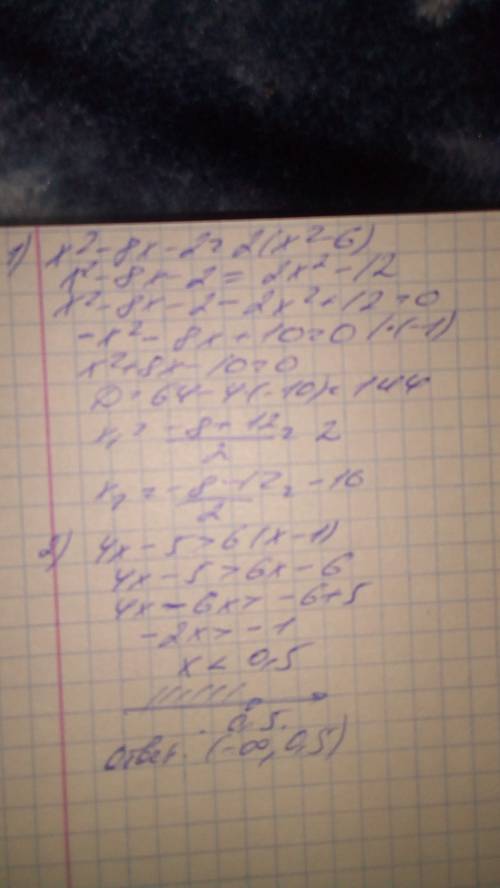 1) x² - 8x - 2 = 2(x² - 6)
x² - 8x - 2 = 2x² - 12
x² - 8x - 2 - 2x² + 12 = 0
-x² - 8x + 10 = 0 | · (-1)
x² + 8x - 10 = 0
D = 64 - 4(-10) = 144
x₁ = (-8 + 12)/2 = 2
x₂ = (-8 - 12)/2 = -16
2) 4x - 5 > 6(x - 1)
4x - 5 > 6x - 6
4x - 6x > -6 + 5
-2x > -1
x < 0,5
0,5
Ответ: (-∞, 0,5)